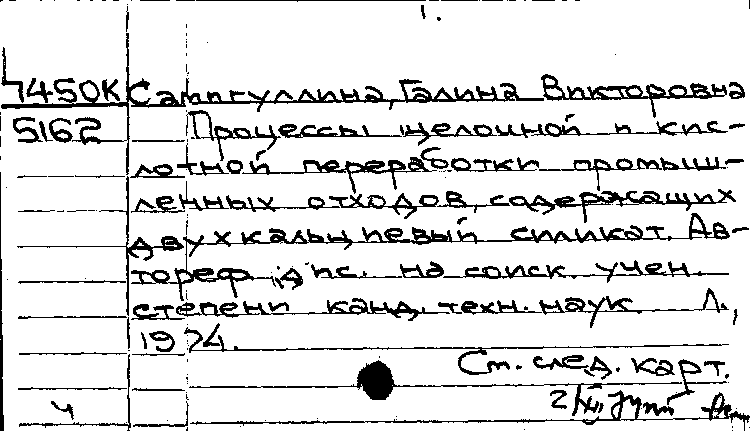 1.
7450К Самигуллина, Галина Викторовна
5162 Процессы щелочной и кис-
лотной переработки промыш-
ленных отходов, содержащих
двухкальциевый силикат. Ав-
тореф. дис. на соиск. учен.
степени канд. техн. наук. Л.,
1974.
См. след. карт.
ч 2/XII